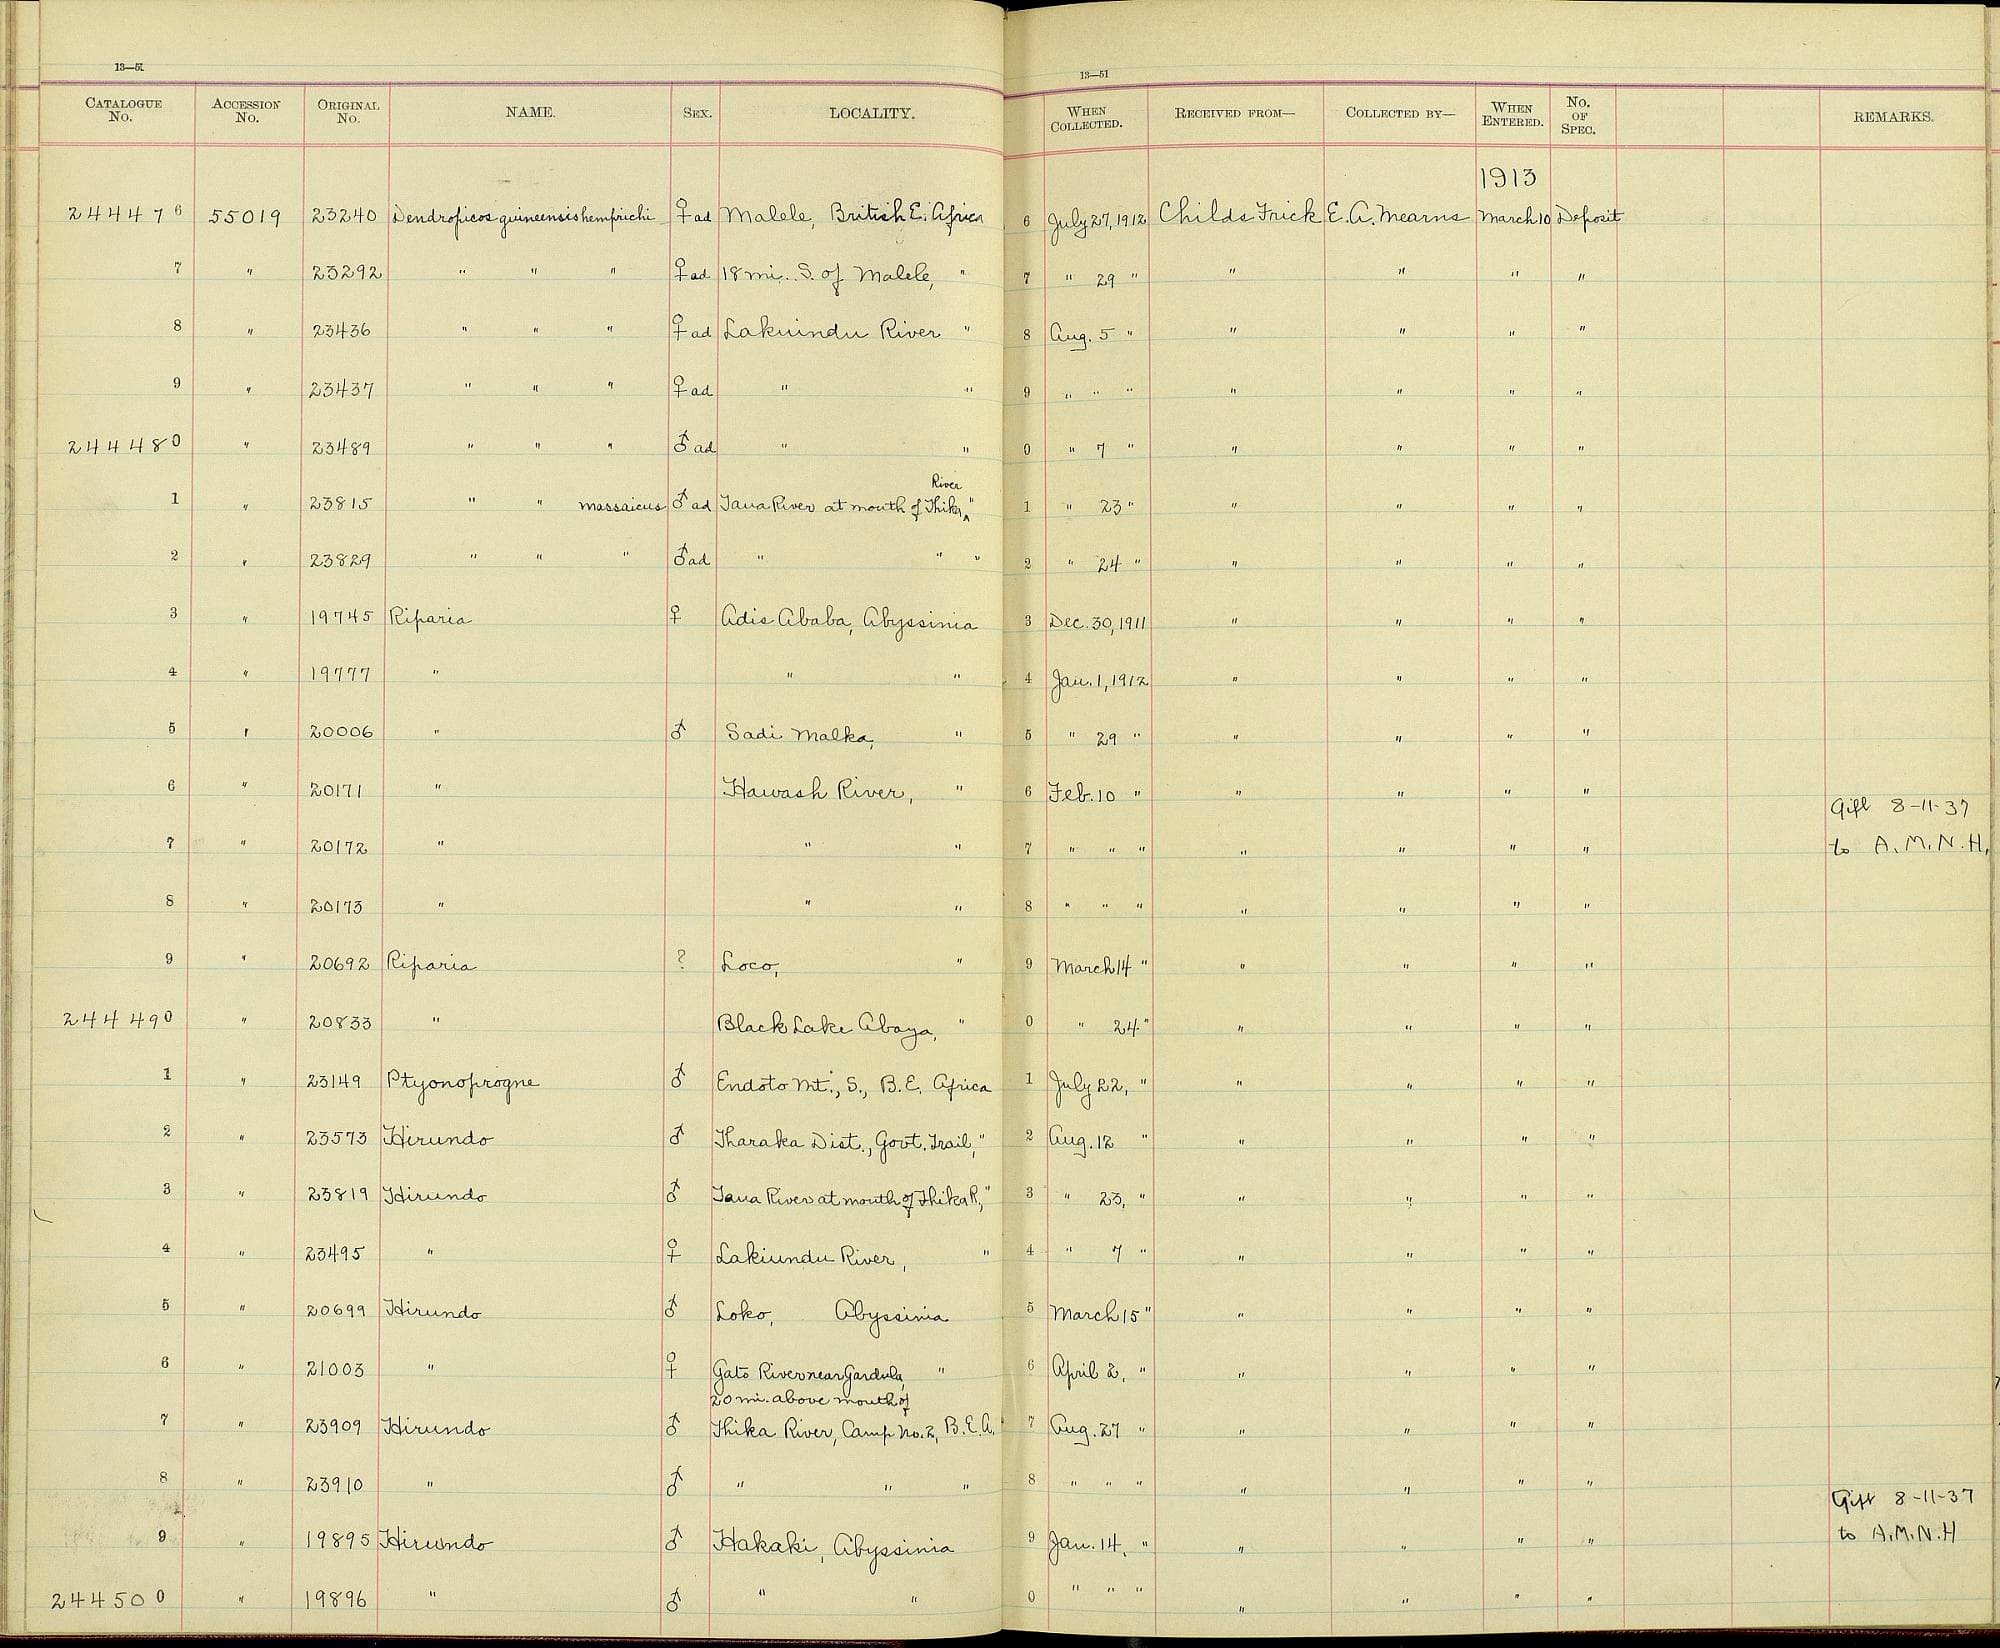 13—51
13—51
CATALOGUE No. ACCESSION No. ORIGINAL No. NAME. SEX. LOCALITY. WHEN COLLECTED. RECEIVED FROM— COLLECTED BY— WHEN ENTERED. No. OF SPEC. REMARKS.
1913
244476 55019 23240 Dendropicos guineensis hemprichi ♀ ad Malele, British E. Africa 6 July 27, 1912 Childs Frick E. A. Mearns March 10 Deposit
7 " 23292 " " " ♀ ad 18 mi. S. of Malele, " 7 " 29 " " " " "
8 " 23436 " " " ♀ ad Lakuindu River " 8 Aug. 5 " " " " "
9 " 23437 " " " ♀ ad " " 9 " " " " " " "
244480 " 23489 " " " ♂ ad " " 0 " 7 " " " " "
1 " 23815 " " massaicus ♂ ad Tana River at mouth of Thika River " 1 " 23 " " " " "
2 " 23829 " " " ♂ ad " " " 2 " 24 " " " " "
3 " 19745 Riparia ♀ Adis Ababa, Abyssinia 3 Dec. 30, 1911 " " " "
4 " 19777 " " " 4 Jan. 1, 1912 " " " "
5 " 20006 " ♂ Sadi Malka, " 5 " 29 " " " " "
6 " 20171 " Hawash River, " 6 Feb. 10 " " " " " Gift 8-11-37
7 " 20172 " " " 7 " " " " " " " to A.M.N.H.
8 " 20173 " " " 8 " " " " " " "
9 " 20692 Riparia ? Loco, " 9 March 14 " " " " "
244490 " 20833 " Black Lake Abaya, " 0 " 24 " " " " "
1 " 23149 Ptyonoprogne ♂ Endoto Mt., S., B. E. Africa 1 July 22, " " " " "
2 " 23573 Hirundo ♂ Tharaka Dist., Govt. Trail, " 2 Aug. 12 " " " " "
3 " 23819 Hirundo ♂ Tana River at mouth of Thika R., " 3 " 23, " " " " "
4 " 23495 " ♀ Lakiundu River, " 4 " 7 " " " " "
5 " 20699 Hirundo ♂ Loko, Abyssinia 5 March 15 " " " " "
6 " 21003 " ♀ Gato River near Gardula, " 6 April 2, " " " " "
20 mi. above mouth of
7 " 23909 Hirundo ♂ Thika River, Camp No. 2, B. E. A. 7 Aug. 27 " " " " "
8 " 23910 " ♂ " " " 8 " " " " " " " Gift 8-11-37
9 " 19895 Hirundo ♂ Hakaki, Abyssinia 9 Jan. 14, " " " " " to A.M.N.H
244500 " 19896 " ♂ " " 0 " " " " " " "